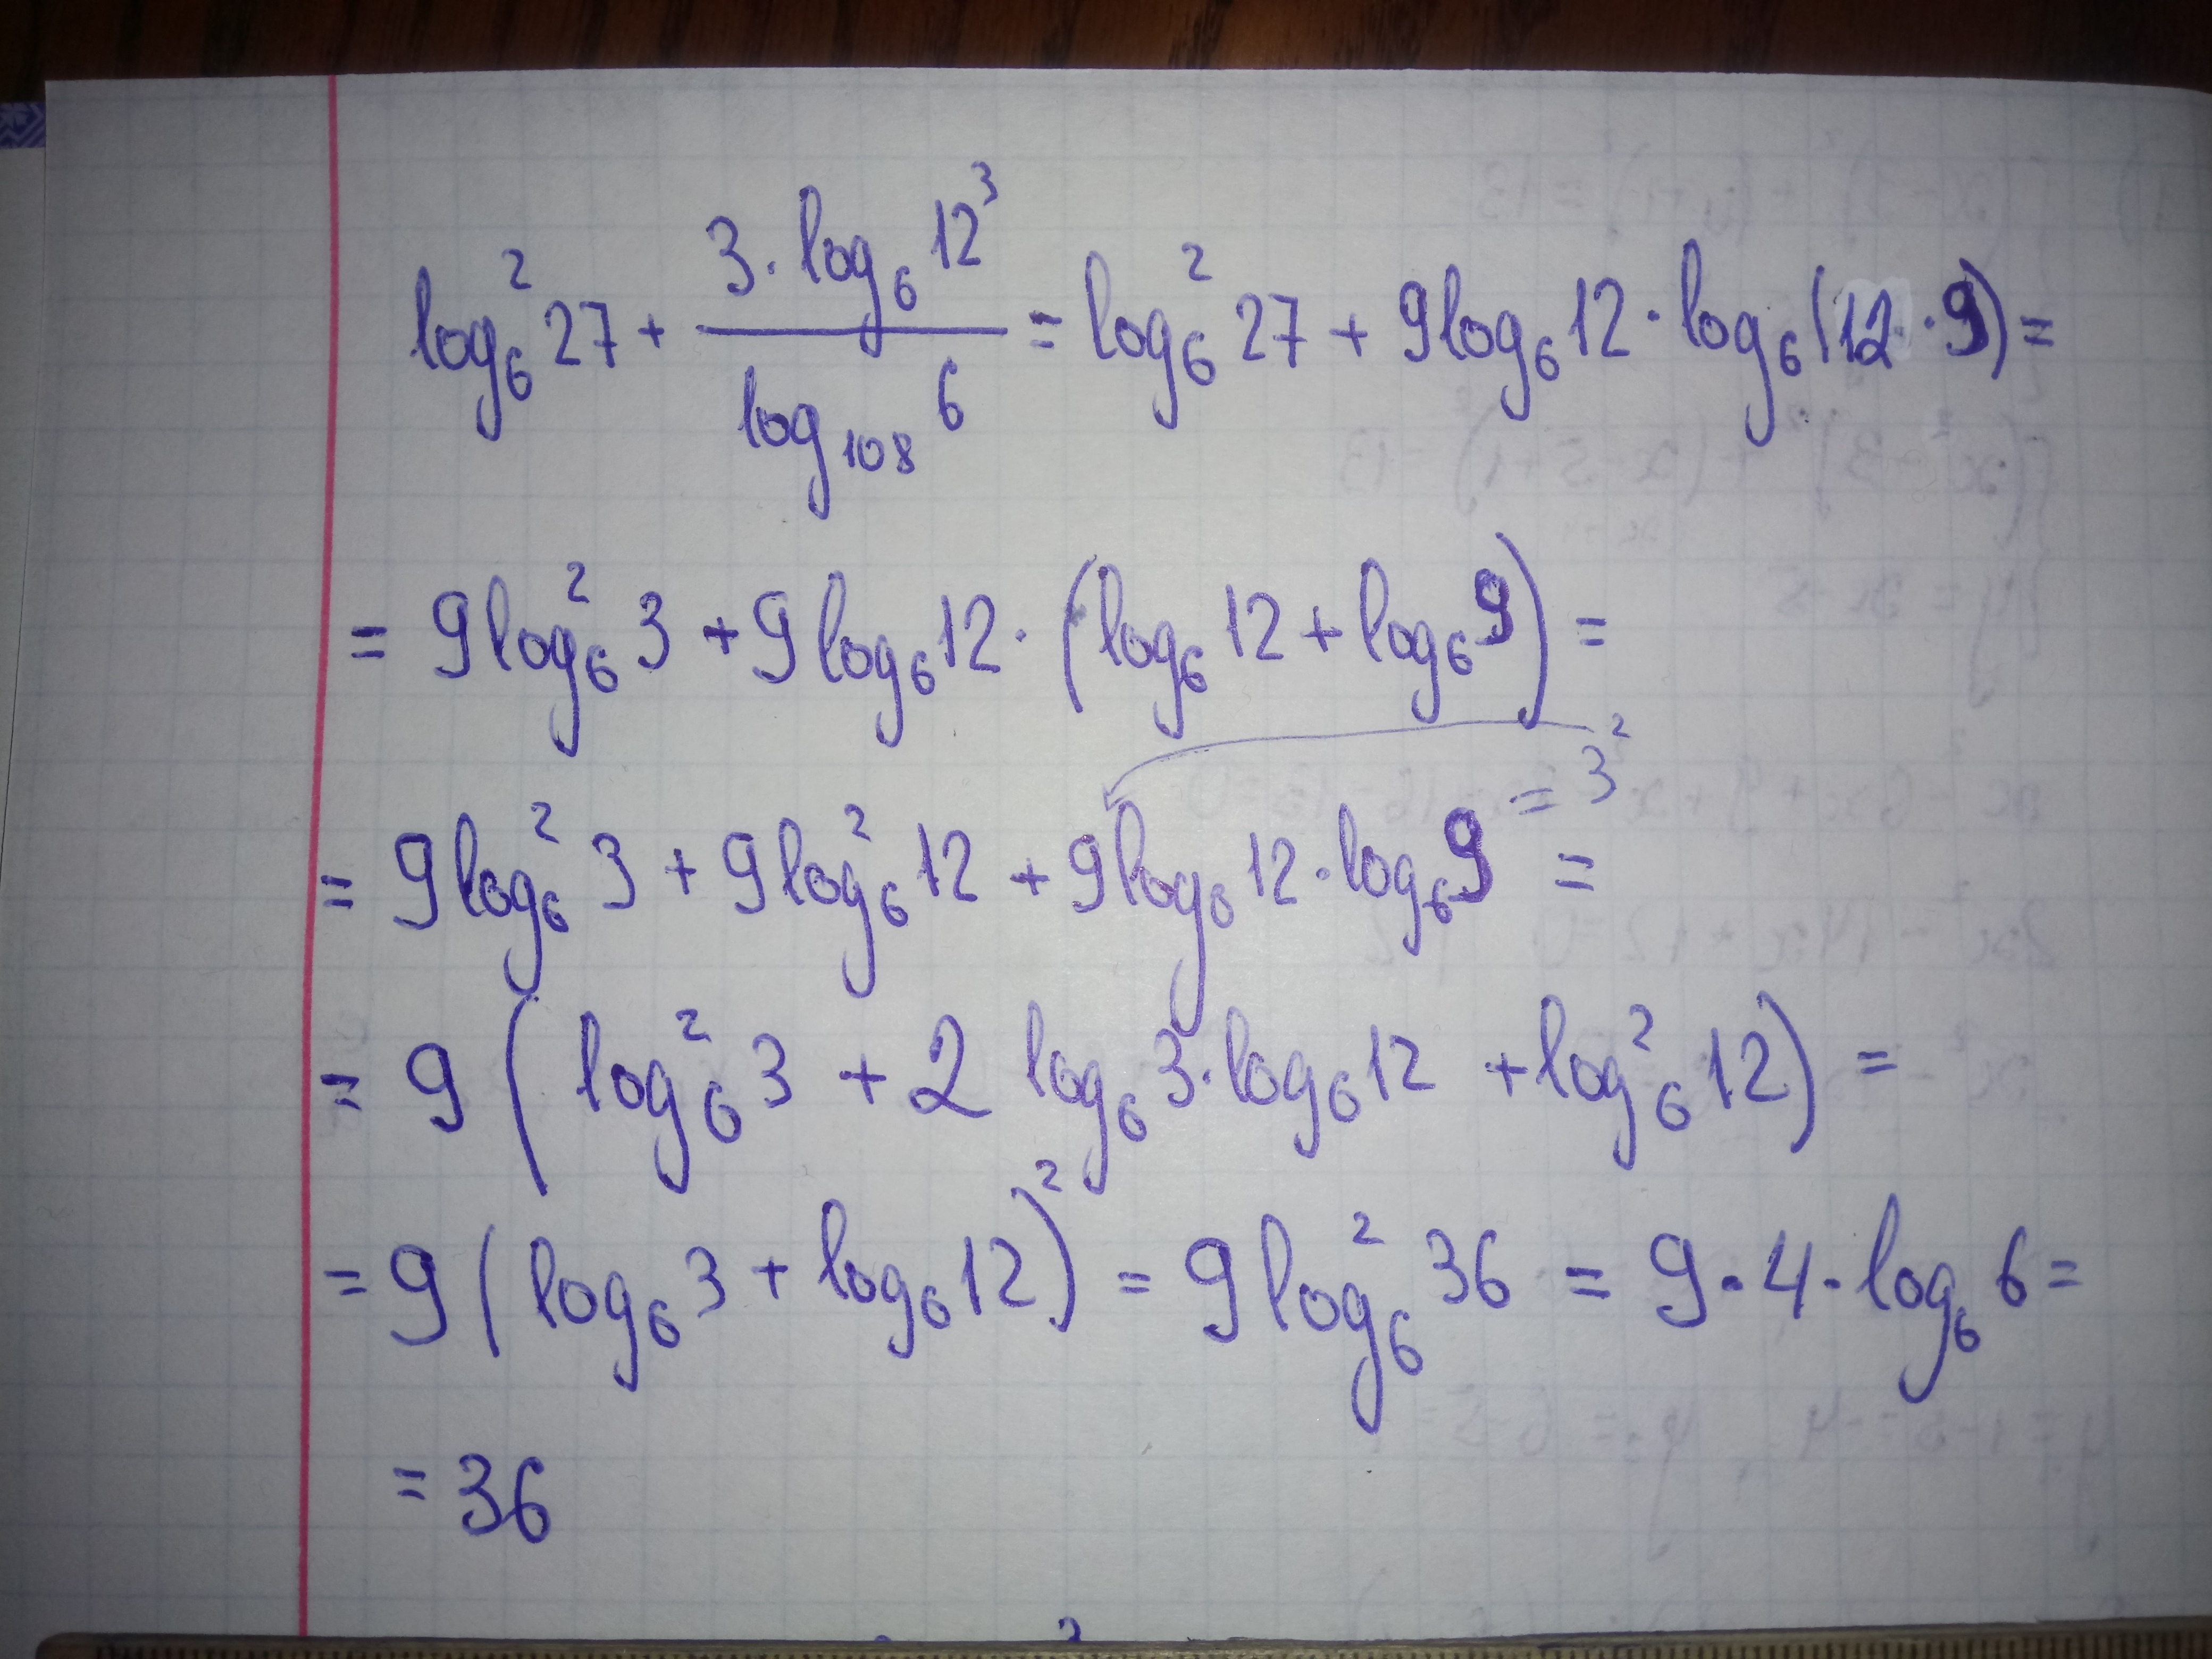 log₆² 27 + (3 · log₆ 12³)/(log₁₀₈ 6) = log₆² 27 + 9log₆ 12 · log₆(12 · 9) =
= 9log₆² 3 + 9log₆ 12 · (log₆ 12 + log₆ 9) =
= 9log₆² 3 + 9log₆² 12 + 9log₆ 12 · log₆ 9 = 3² =
= 9(log₆² 3 + 2 log₆ 3 · log₆ 12 + log₆² 12) =
= 9(log₆ 3 + log₆ 12)² = 9log₆² 36 = 9 · 4 · log₆ 6 =
= 36